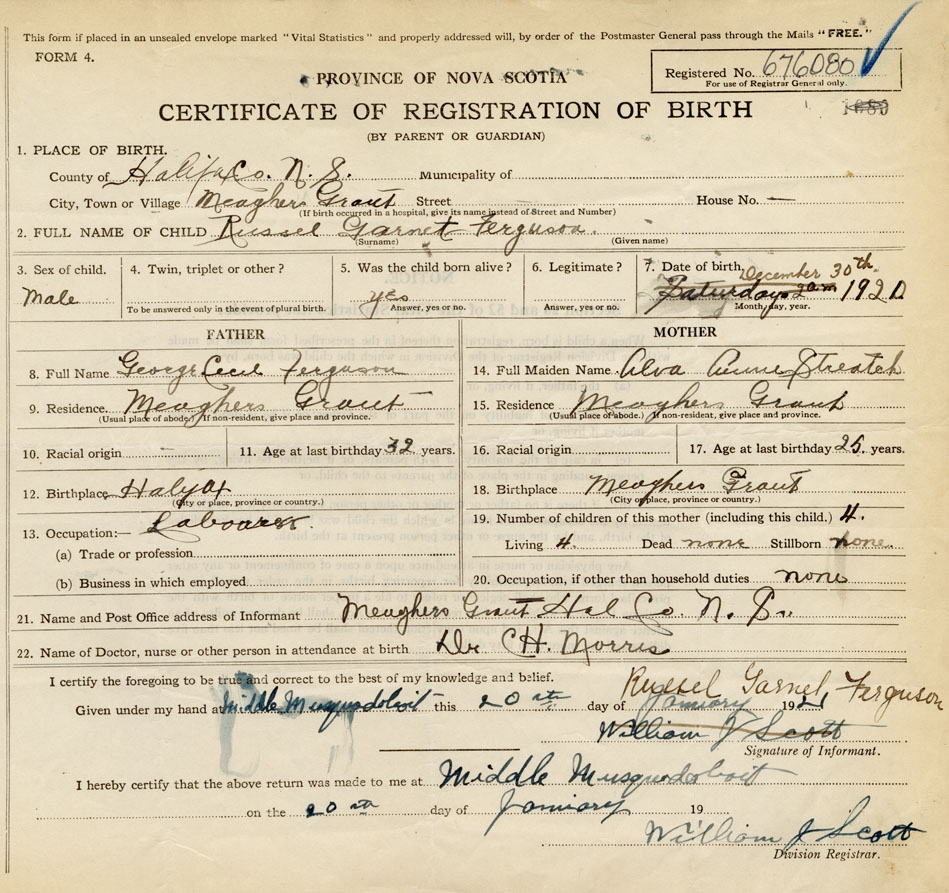 This form if placed in an unsealed envelope marked "Vital Statistics" and properly addressed will, by order of the Postmaster General pass through the Mails "FREE."
FORM 4.
Registered No. 676080
For use of Registrar General only.
PROVINCE OF NOVA SCOTIA
CERTIFICATE OF REGISTRATION OF BIRTH
(BY PARENT OR GUARDIAN)
1. PLACE OF BIRTH.
County of Halifax Co. N. S. Municipality of
City, Town or Village Meaghers Grant Street House No. —
(If birth occurred in a hospital, give its name instead of Street and Number)
2. FULL NAME OF CHILD Russel Garnet Ferguson.
(Surname) (Given name)
3. Sex of child. Male
4. Twin, triplet or other?
To be answered only in the event of plural birth.
5. Was the child born alive? yes
Answer, yes or no.
6. Legitimate?
Answer, yes or no.
7. Date of birth December 30th
Saturday 2 am 1920
Month, day, year.
FATHER
8. Full Name George Cecil Ferguson
9. Residence. Meaghers Grant
(Usual place of abode.) If non-resident, give place and province.
10. Racial origin —
11. Age at last birthday 32 years.
12. Birthplace Halifax
(City or place, province or country.)
13. Occupation:— Labourer
(a) Trade or profession
(b) Business in which employed
MOTHER
14. Full Maiden Name Alva Annie
15. Residence Meaghers Grant
(Usual place of abode.) If non-resident, give place and province.
16. Racial origin
17. Age at last birthday 25. years.
18. Birthplace Meaghers Grant
(City or place, province or country.)
19. Number of children of this mother (including this child.) 4.
Living 4. Dead none Stillborn none
20. Occupation, if other than household duties none
21. Name and Post Office address of Informant Meaghers Grant Hal Co. N. S.
22. Name of Doctor, nurse or other person in attendance at birth Dr CH. Morris
I certify the foregoing to be true and correct to the best of my knowledge and belief.
Russel Garnet Ferguson
Given under my hand at Middle Musquodoboit this 20 th day of Januiary 1921
William J Scott
Signature of Informant.
I hereby certify that the above return was made to me at Middle Musquodoboit
on the 20 th day of Januiary 19
William J Scott
Division Registrar.